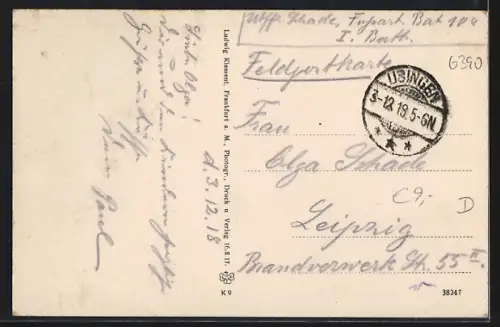 Uffz. Schade, Fußart. Bat 104
I. Batt.
6390
Feldpostkarte
USINGEN
3-12.18.5-6N.
Frau
Olga Schade
C9,-
D
Leipzig
Brandvorwerk Str. 55 II.
38247
Ludwig Klement, Frankfurt a. M., Photogr., Druck u Verlag 16.8.17.
K 9
d. 3.12.18
Liebe Olga!
Dir und den Kindern
Grüße u. Küsse
Dein Paul